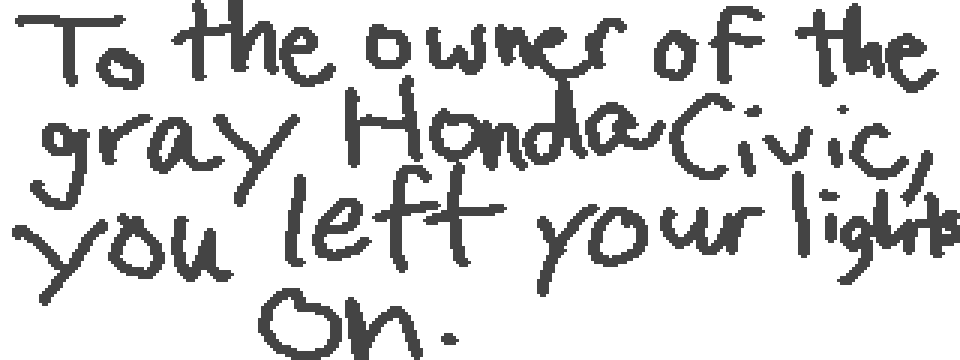 To the owner of the
gray Honda Civic,
you left your lights
on.